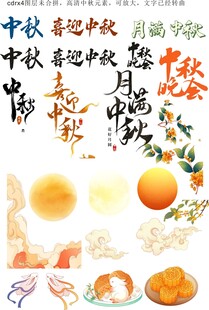 cdrx4图层未合拼，高清中秋元素，可放大，文字已经转曲
中秋 喜迎中秋 月满 中秋
中秋 喜迎中秋 中秋晚会
中秋 喜迎中秋 月满中秋 中秋晚会
花好月圆